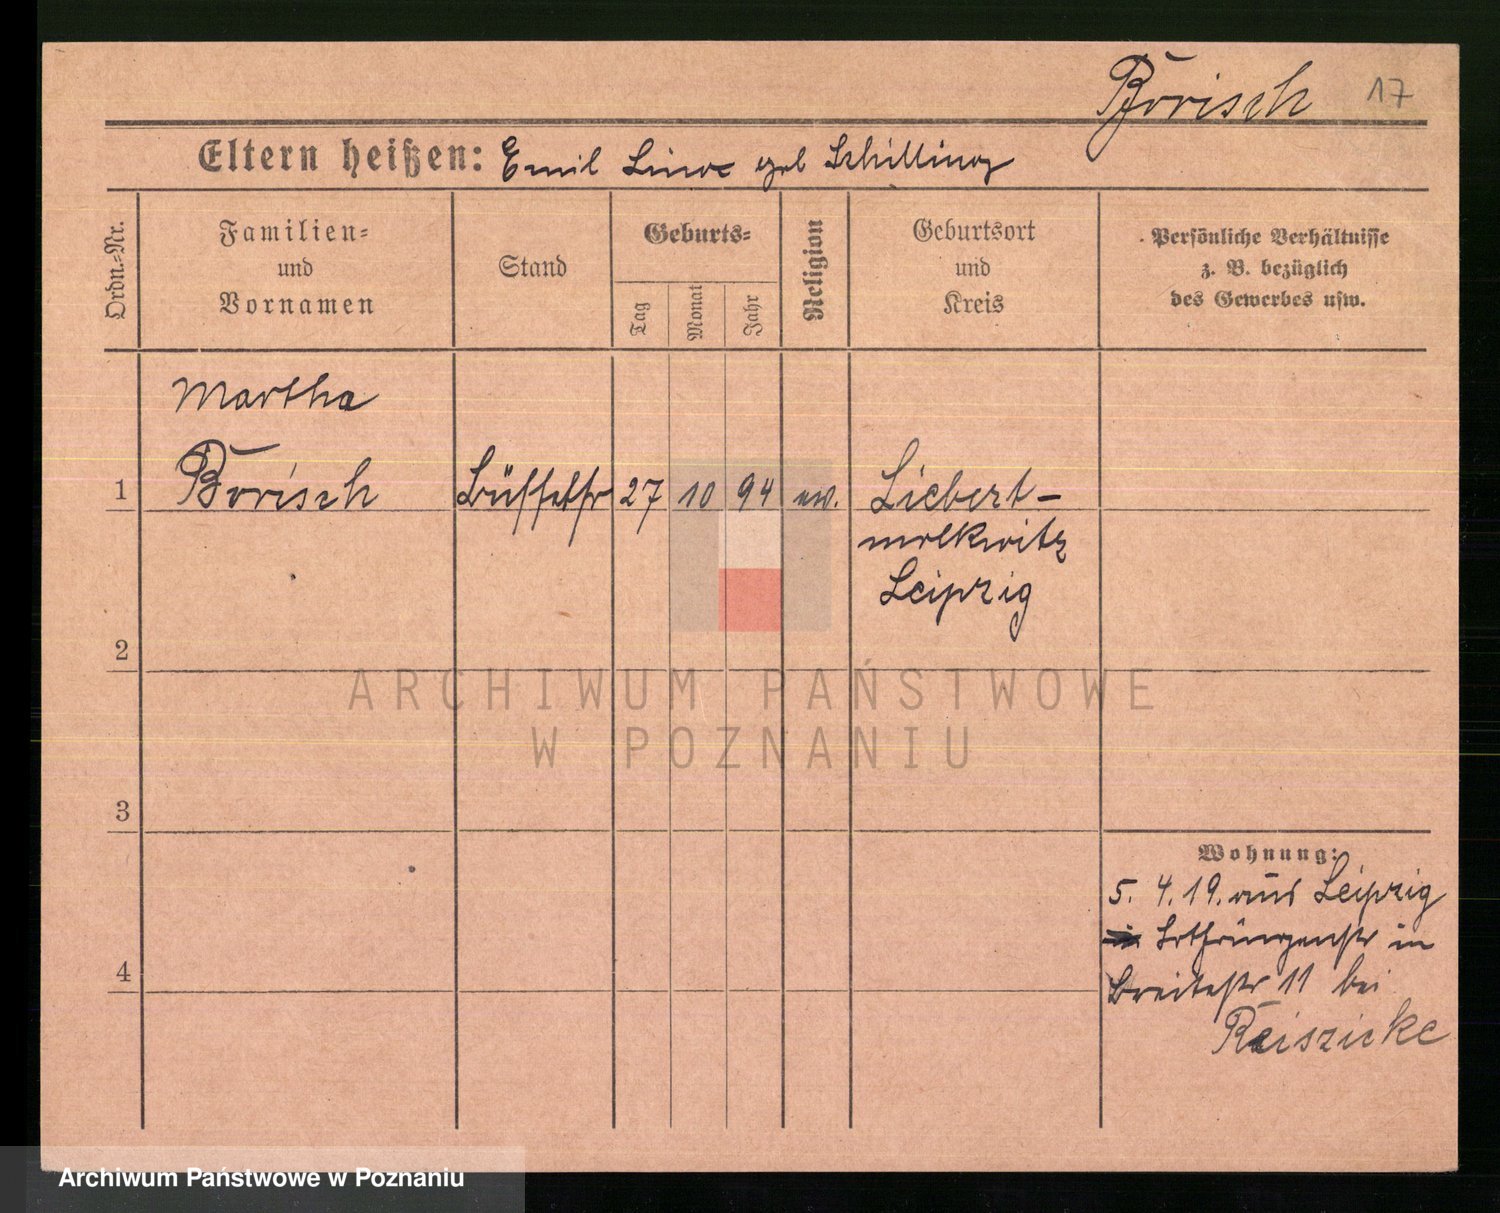 Borisch 17
Eltern heißen: Emil Lina geb Schilling
Ordn.-Nr.
Familien-
und
Vornamen
Stand
Geburts-
Tag
Monat
Jahr
Religion
Geburtsort
und
Kreis
Persönliche Verhältnisse
z. B. bezüglich
des Gewerbes usw.
Martha
1 Borisch Büffetfr 27 10 94 ev. Liebert-
wolkwitz
Leipzig
2
ARCHIWUM PAŃSTWOWE
W POZNANIU
3
Wohnung:
5. 4. 19. aus Leipzig
in
4
Breitestr 11 bei
Reiszicke
Archiwum Państwowe w Poznaniu